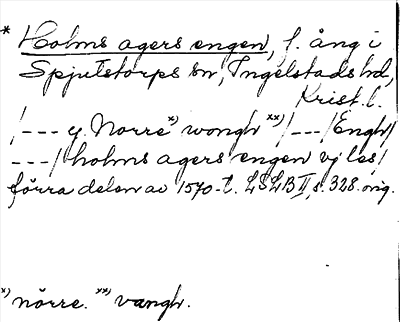 * Holms agers engen, f. äng i
Spjutstorps sn, Ingelstads hd,
Krist. l.
/--- y. Norre x) wongh xx)/---/Engh/
---/ holms agers engen vj les/
förra delen av 1570-t. LSLB II, s. 328. orig.
x) nörre. xx) vangh.